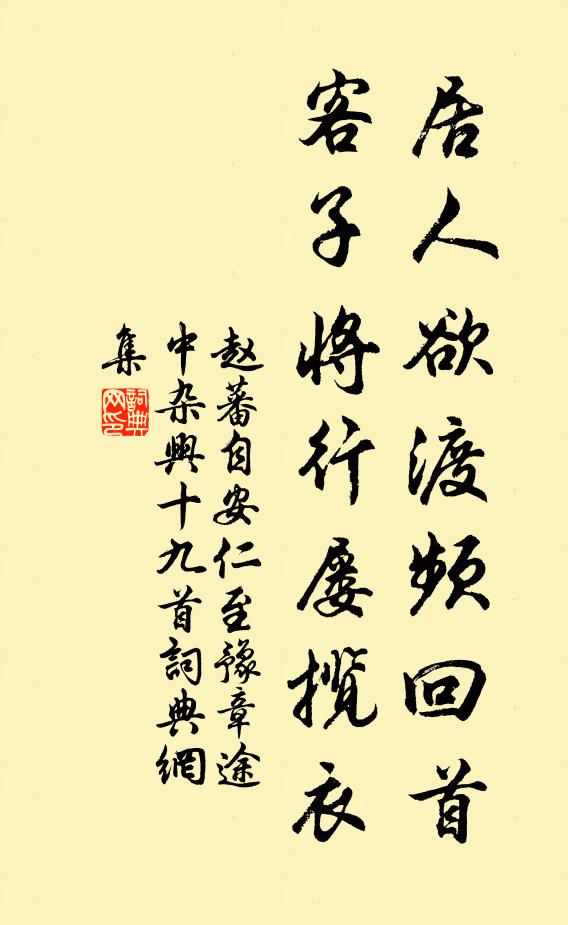 居人欲渡频回首
客子将行屡揽衣
赵蕃自安仁至豫章途
中杂兴十九首詞典網
集
詞典
网印